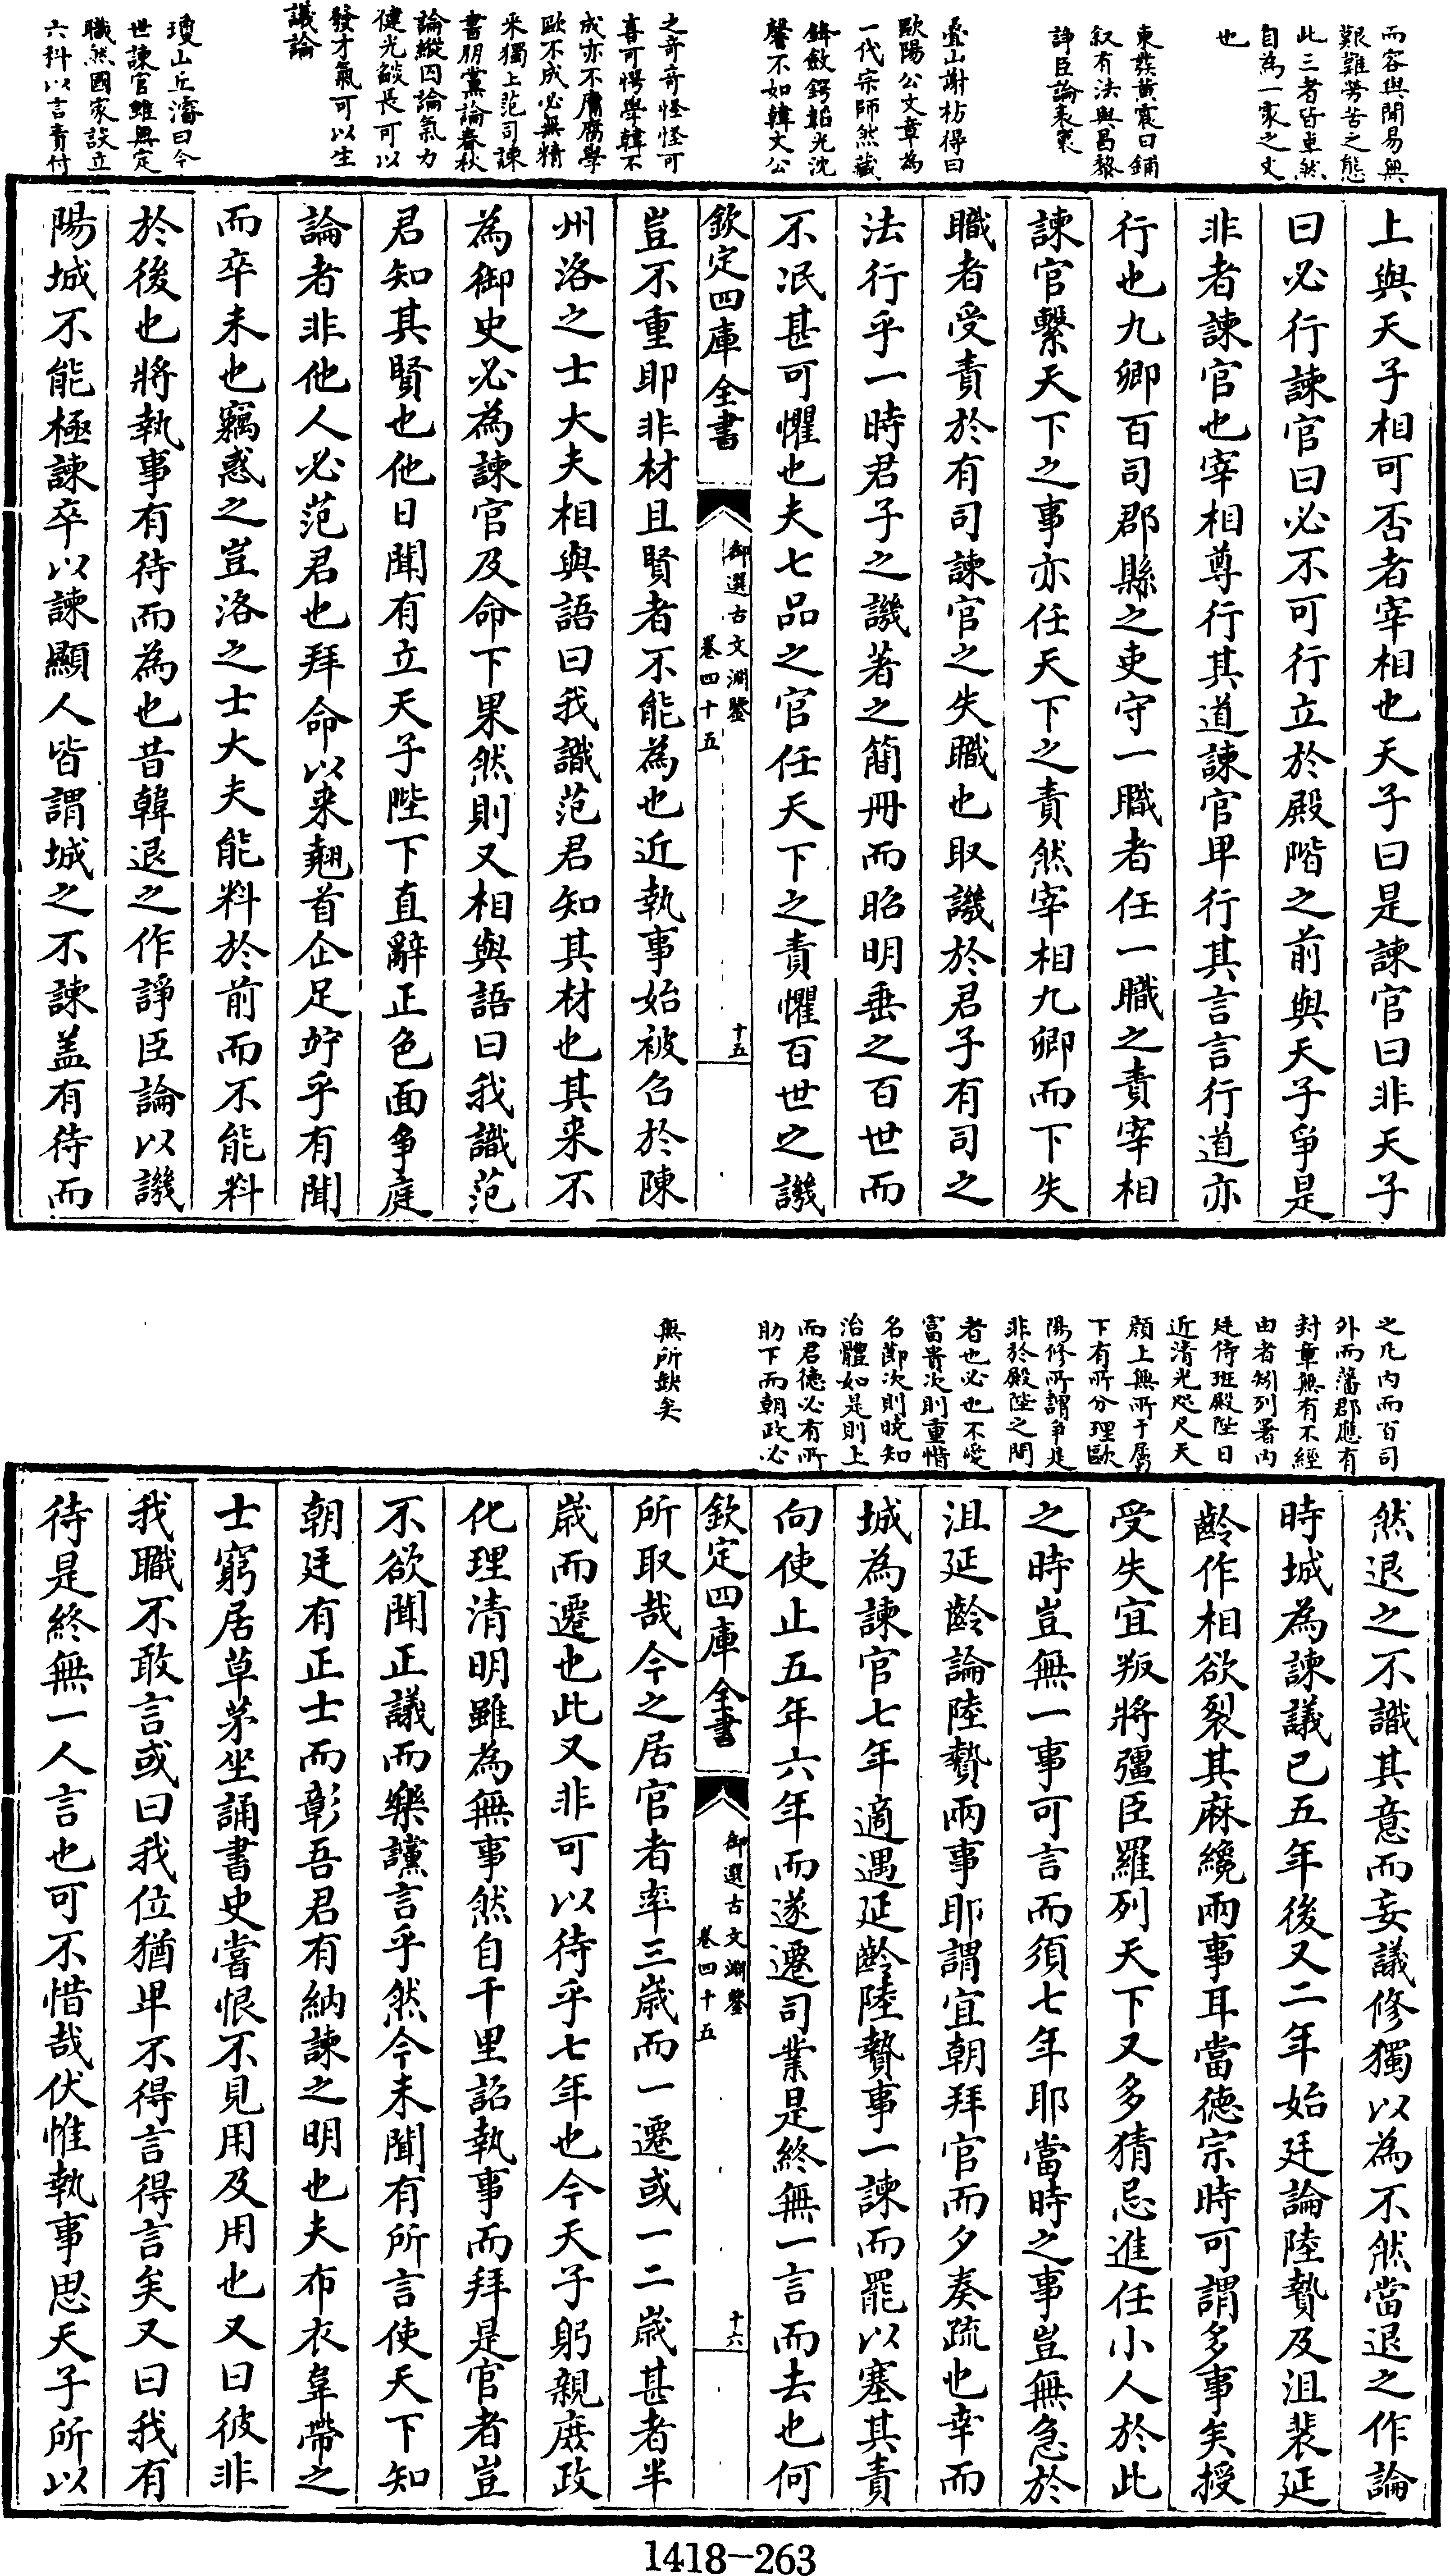 而容與閒易無
艱難勞苦之態
此三者皆卓然
自為一家之文
也
東發黃震曰鋪
叙有法與昌黎
諍臣論表裏
疊山謝枋得曰
歐陽公文章為
一代宗師然藏
鋒斂鍔韜光沈
馨不如韓文公
之奇奇怪怪可
喜可愕學韓不
成亦不庸腐學
歐不成必無精
采獨上范司諫
書朋黨論春秋
論縱囚論氣力
健光燄長可以
發才氣可以生
議論
瓊山丘濬曰今
世諫官雖無定
職然國家設立
六科以言責付
上與天子相可否者宰相也天子曰是諫官曰非天子
曰必行諫官曰必不可行立於殿階之前與天子爭是
非者諫官也宰相尊行其道諫官卑行其言言行道亦
行也九卿百司郡縣之吏守一職者任一職之責宰相
諫官繫天下之事亦任天下之責然宰相九卿而下失
職者受責於有司諫官之失職也取譏於君子有司之
法行乎一時君子之譏著之簡冊而昭明垂之百世而
不泯甚可懼也夫七品之官任天下之責懼百世之譏
欽定四庫全書
御選古文淵鑒
卷四十五
十五
豈不重耶非材且賢者不能為也近執事始被召於陳
州洛之士大夫相與語曰我識范君知其材也其来不
為御史必為諫官及命下果然則又相與語曰我識范
君知其賢也他日聞有立天子陛下直辭正色面爭庭
論者非他人必范君也拜命以来翹首企足竚乎有聞
而卒未也竊惑之豈洛之士大夫能料於前而不能料
於後也將執事有待而為也昔韓退之作諍臣論以譏
陽城不能極諫卒以諫顯人皆謂城之不諫盖有待而
之凡内而百司
外而藩郡應有
封章無有不經
由者矧列署内
廷侍班殿陛日
近清光咫尺天
顔上無所于屬
下有所分理歐
陽修所謂爭是
非於殿陛之間
者也必也不愛
富貴次則重惜
名節次則曉知
治體如是則上
而君德必有所
助下而朝政必
無所缺矣
然退之不識其意而妄議修獨以為不然當退之作論
時城為諫議已五年後又二年始廷論陸贄及沮裴延
齡作相欲裂其麻纔兩事耳當徳宗時可謂多事矣授
受失宜叛將彊臣羅列天下又多猜忌進任小人於此
之時豈無一事可言而須七年耶當時之事豈無急於
沮延齡論陸贄兩事耶謂宜朝拜官而夕奏疏也幸而
城為諫官七年適遇延齡陸贄事一諫而罷以塞其責
向使止五年六年而遂遷司業是終無一言而去也何
欽定四庫全書
御選古文淵鑒
卷四十五
十六
所取哉今之居官者率三歳而一遷或一二歳甚者半
歳而遷也此又非可以待乎七年也今天子躬親庶政
化理清明雖為無事然自千里詔執事而拜是官者豈
不欲聞正議而樂讜言乎然今未聞有所言使天下知
朝廷有正士而彰吾君有納諫之明也夫布衣韋帶之
士窮居草茅坐誦書史嘗恨不見用及用也又曰彼非
我職不敢言或曰我位猶卑不得言得言矣又曰我有
待是終無一人言也可不惜哉伏惟執事思天子所以
1418-263